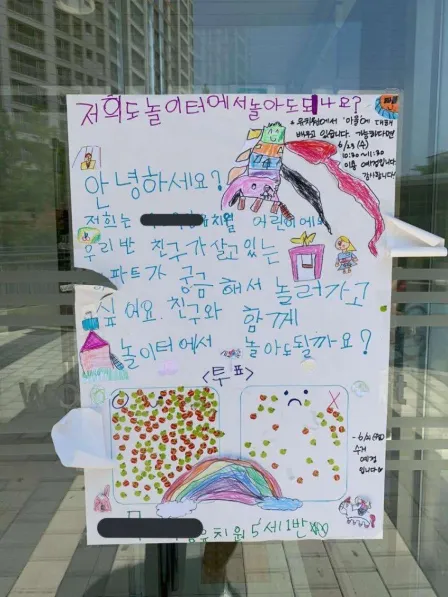 저희도 놀이터에서 놀아도 되나요?
* 유치원에서 '마을'에 대해
배우고 있습니다. 가능하다면
6/23 (수)
10:30~11:30
이용 예정입니다
감사합니다!
안녕하세요?
저희는 유치원 어린이에요
우리반 친구가 살고 있는
아파트가 궁금해서 놀러가고
싶어요. 친구와 함께
놀이터에서 놀아도 될까요?
<투표>
O
X
수거
예정
입니다
유치원 5세 1반